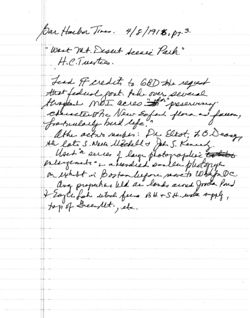 Bar Harbor Times. 4/2/1918, pt. 3
"Want Mt Desert Scenic Park"
H.C. Tuerties.
Lead ¶ credits to GBD the request
that federal govt. take over several
thousand MDI acres "preserving
characteristic New England flora and fauna,
particularly bird life."
Other action members: Dr. Eliot, G.B. Dorr,
the late S. Weir Mitchell & John S. Kennedy
Used "a series of large photographic
enlargements" a hundred smaller photographs
on exhibit in Boston before move to Wash DC
Any properties held as lands around Jordan Pond
& Eagle Lake which from BH & SH water supply,
top of Green Mt., etc.